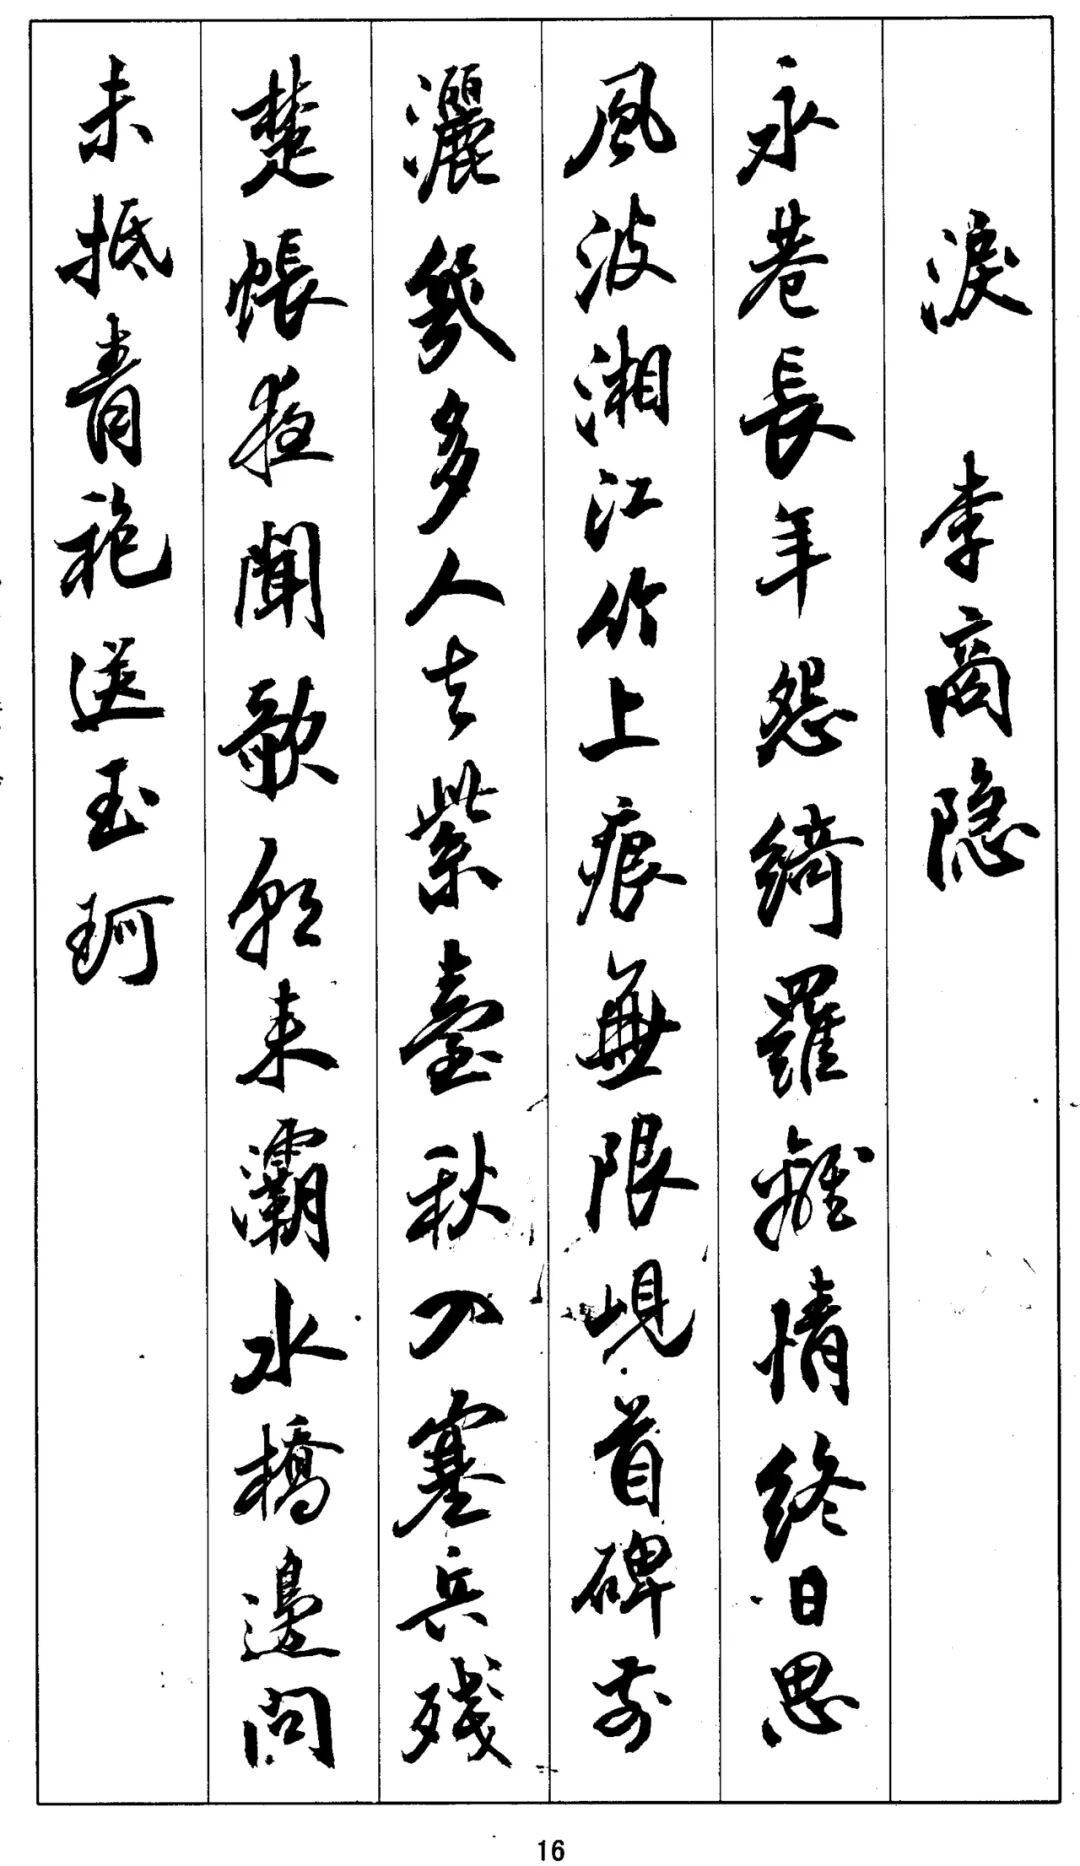 淚 李商隐
永巷長年怨綺羅離情終日思
風波湘江竹上痕無限峴首碑前
灑幾多人去紫臺秋入塞兵殘
楚帳夜聞歌朝来灞水橋邊問
未抵青袍送玉珂
16